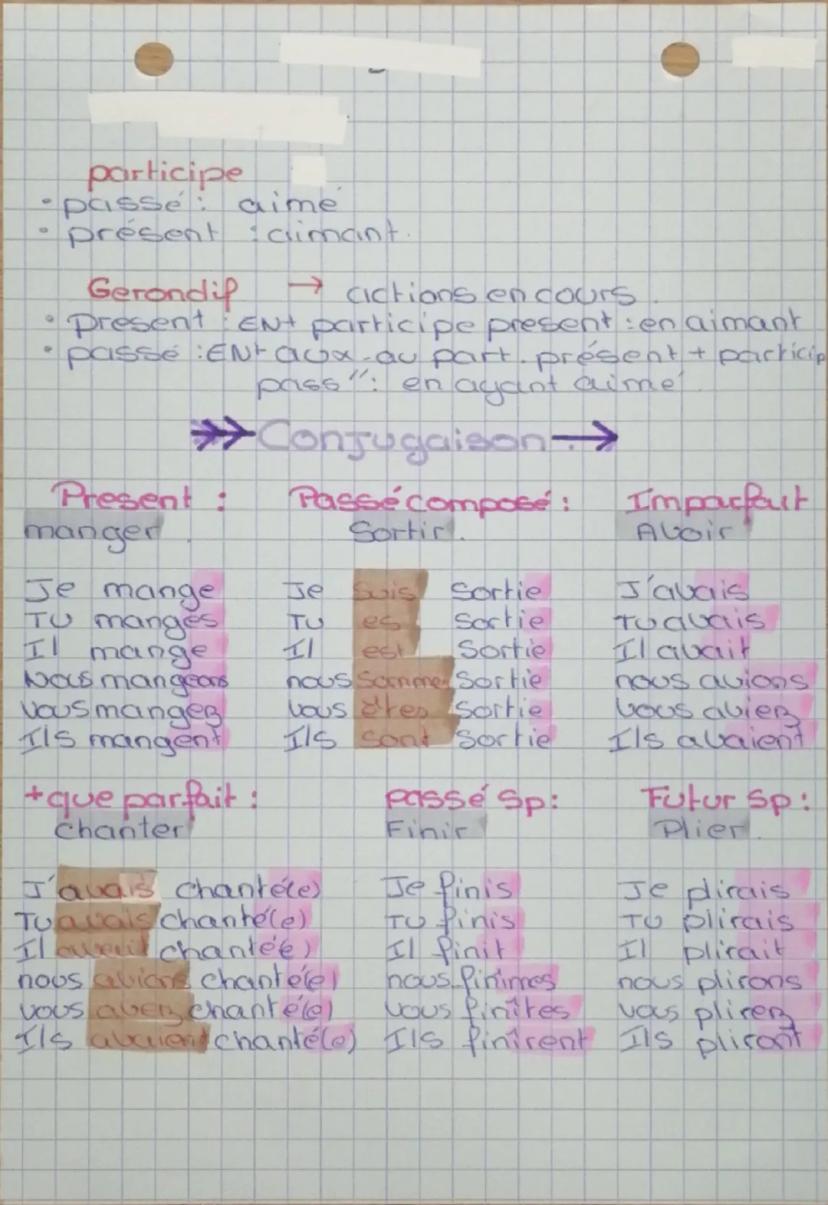 participe
• passé : aimé
• présent : aimant.
Gerondif → actions en cours.
• Present : EN+ participe present : en aimant
• passé : EN+ aux. au part. présent + particip
pass" : en ayant aimé.
Conjugaison
Present : Passé composé : Imparfait
manger Sortir. Avoir
Je mange Je suis sortie J'avais
Tu manges Tu es sortie Tu avais
Il mange Il est sortie Il avait
Nous mangeons nous somme sortie nous avions
Vous mangez Vous êtes sortie Vous aviez
Ils mangent Ils sont sortie Ils avaient
+ que parfait : passé Sp : Futur Sp :
Chanter Finir Plier.
J'avais chanté(e) Je finis Je plirais
Tu avais chanté(e) Tu finis Tu plirais
Il avait chantée) Il finit Il plirait
nous avions chanté(e) nous finîmes nous plirons
vous avez chanté(e) Vous finîtes vous plirez
Ils avaient chanté(e) Ils finîrent Ils pliront